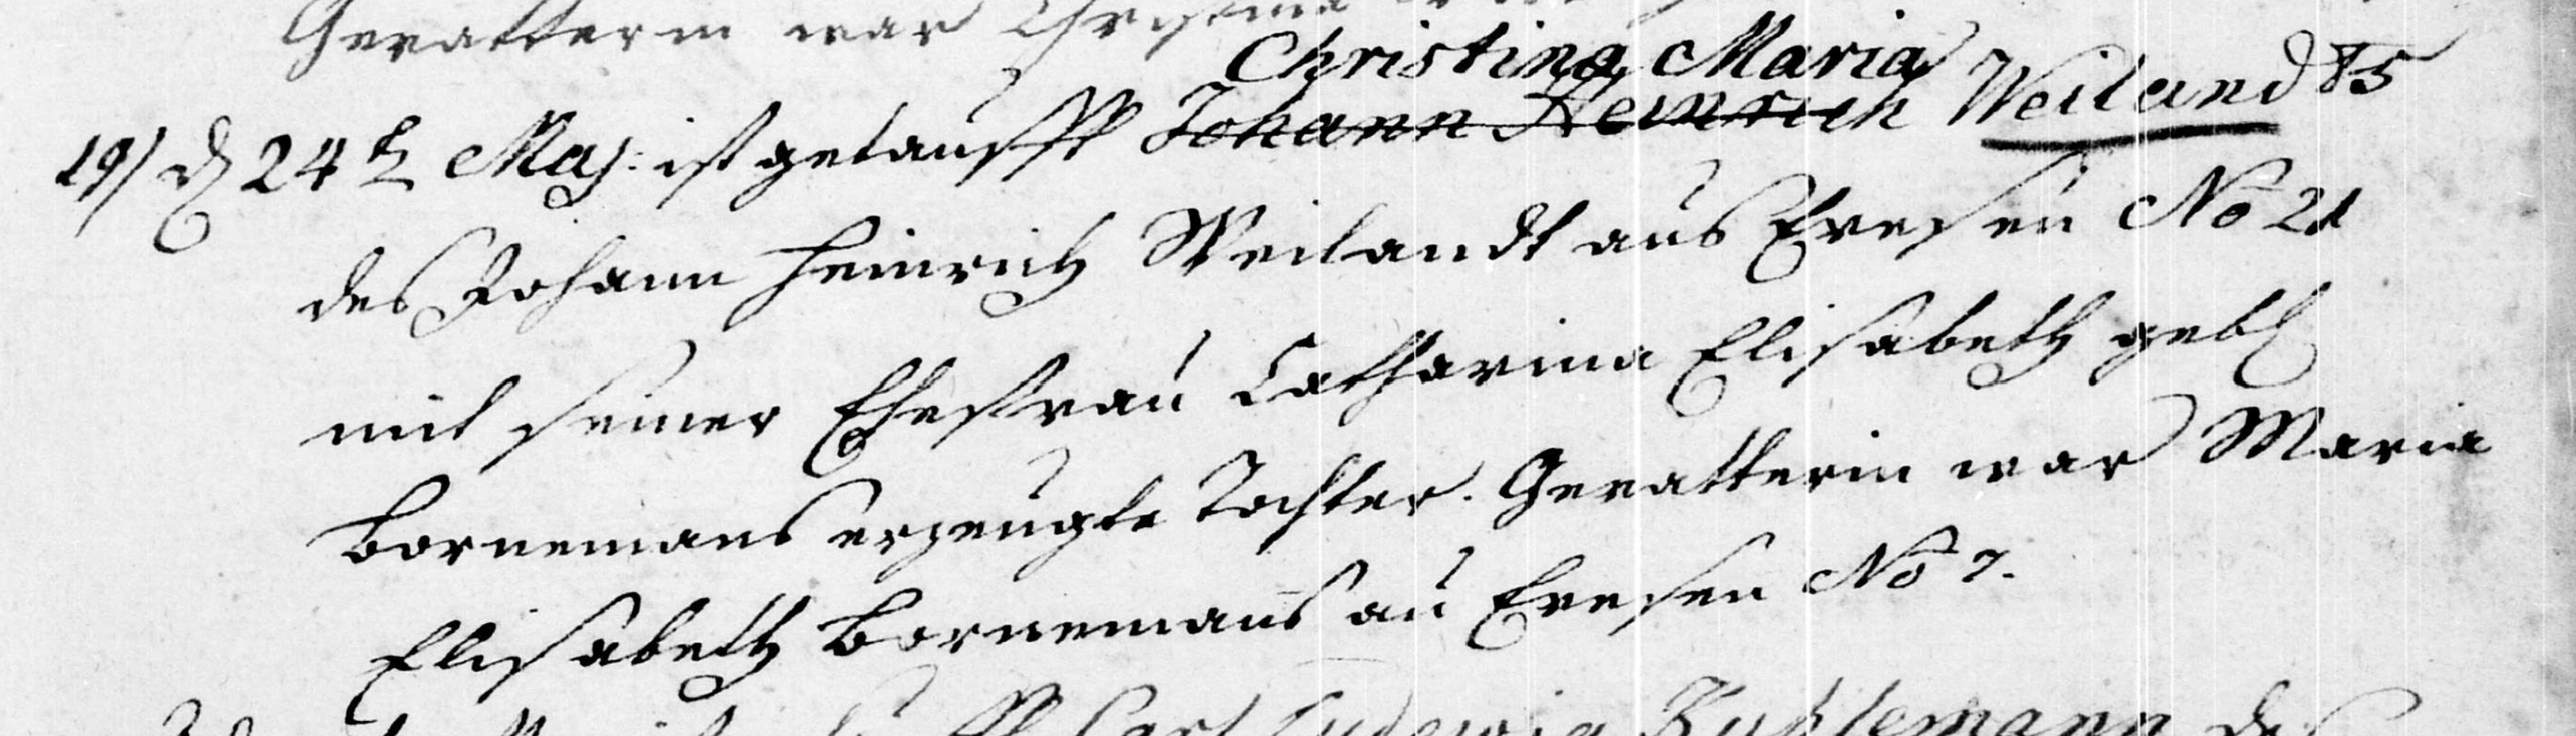 Gevatterin war Christina
Christina Maria
19/ d 24t Maj: ist getaufft Johann Heinrich Weiland 85
des Johann Heinrich Weilandt aus Evesen No 21
mit seiner Ehefrau Catharina Elisabeth geb
Bornemans erzeugte Tochter. Gevatterin war Maria
Elisabeth Bornemans au Evesen No 7.
Carl Ludewig des